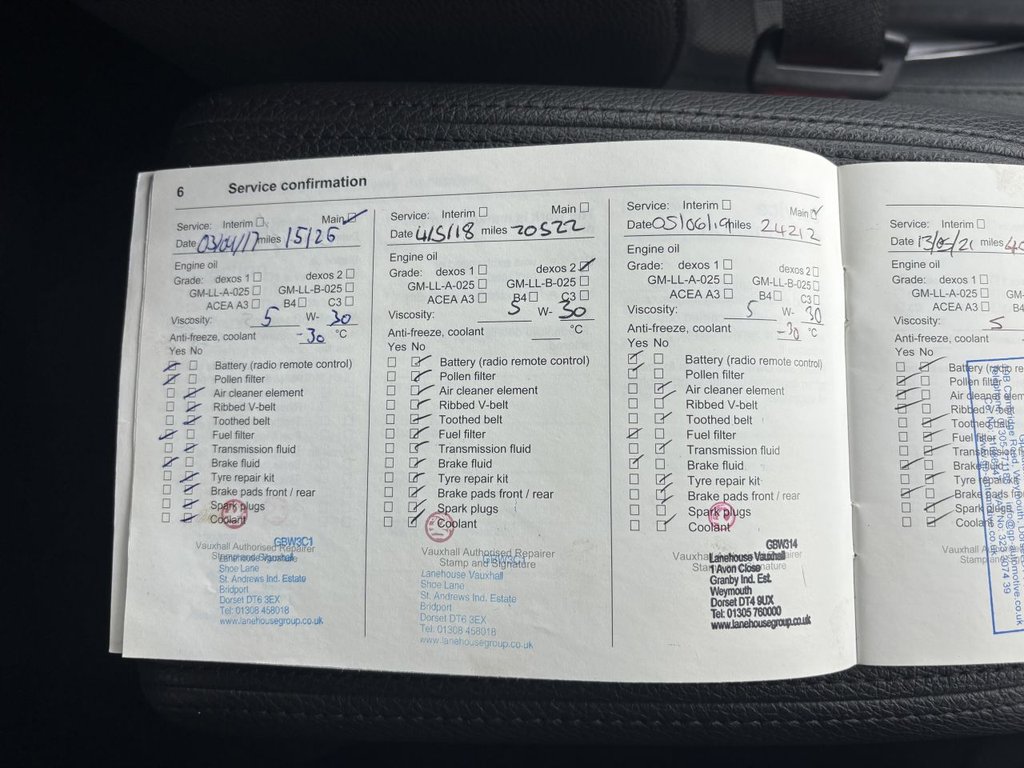 6 Service confirmation
Service: Interim ☐ Main ☑
Date 03/04/17 miles 15126
Engine oil
Grade: dexos 1 ☐ dexos 2 ☐
GM-LL-A-025 ☐ GM-LL-B-025 ☐
ACEA A3 ☐ B4 ☐ C3 ☐
Viscosity: 5 W- 30
Anti-freeze, coolant -30 °C
Yes No
Battery (radio remote control)
Pollen filter
Air cleaner element
Ribbed V-belt
Toothed belt
Fuel filter
Transmission fluid
Brake fluid
Tyre repair kit
Brake pads front / rear
Spark plugs
Coolant
GBW3C1
Vauxhall Authorised Repairer
Stamp and Signature
Lanehouse Vauxhall
Shoe Lane
St. Andrews Ind. Estate
Bridport
Dorset DT6 3EX
Tel: 01308 458018
www.lanehousegroup.co.uk
Service: Interim ☐ Main ☐
Date 4/5/18 miles 20522
Engine oil
Grade: dexos 1 ☐ dexos 2 ☑
GM-LL-A-025 ☐ GM-LL-B-025 ☐
ACEA A3 ☐ B4 ☐ C3 ☐
Viscosity: 5 W- 30
Anti-freeze, coolant °C
Yes No
Battery (radio remote control)
Pollen filter
Air cleaner element
Ribbed V-belt
Toothed belt
Fuel filter
Transmission fluid
Brake fluid
Tyre repair kit
Brake pads front / rear
Spark plugs
Coolant
Vauxhall Authorised Repairer
GBW3C1
Stamp and Signature
Lanehouse Vauxhall
Shoe Lane
St. Andrews Ind. Estate
Bridport
Dorset DT6 3EX
Tel: 01308 458018
www.lanehousegroup.co.uk
Service: Interim ☐ Main ☑
Date 05/06/19 miles 24212
Engine oil
Grade: dexos 1 ☐ dexos 2 ☐
GM-LL-A-025 ☐ GM-LL-B-025 ☐
ACEA A3 ☐ B4 ☐ C3 ☐
Viscosity: 5 W- 30
Anti-freeze, coolant -30 °C
Yes No
Battery (radio remote control)
Pollen filter
Air cleaner element
Ribbed V-belt
Toothed belt
Fuel filter
Transmission fluid
Brake fluid
Tyre repair kit
Brake pads front / rear
Spark plugs
Coolant
GBW314
Vauxhall Authorised Repairer
Stamp and Signature
Lanehouse Vauxhall
1 Avon Close
Granby Ind. Est.
Weymouth
Dorset DT4 9UX
Tel: 01305 760000
www.lanehousegroup.co.uk
Service: Interim ☐
Date 13/05/21 miles
Engine oil
Grade: dexos 1 ☐
GM-LL-A-025 ☐
ACEA A3 ☐ B4
Viscosity: 5
Anti-freeze, coolant
Yes No
Battery
Pollen filter
Air cleaner
Ribbed V-belt
Toothed belt
Fuel filter
Brake
Tyre repair
Brake pads
Spark plugs
Coolant
Vauxhall
Stamp